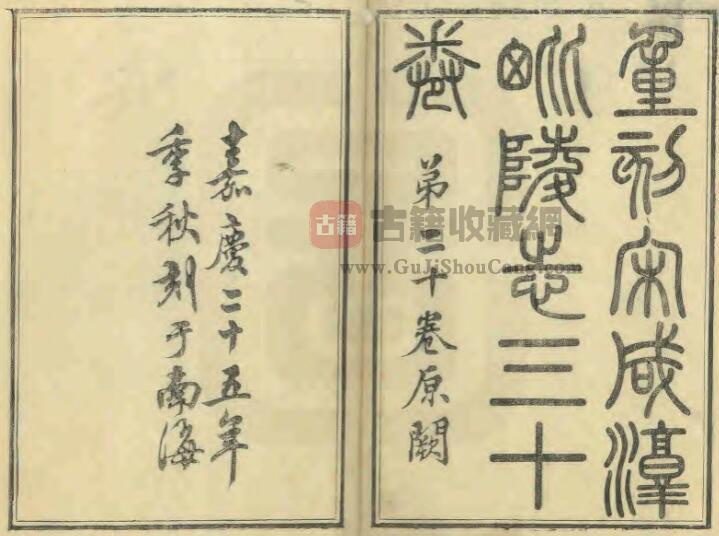 重刻宋咸淳
毗陵志三十
卷
第二十卷原闕
嘉慶二十五年
季秋刻于南海
古籍
古籍收藏網
www.GuJiShouCang.com